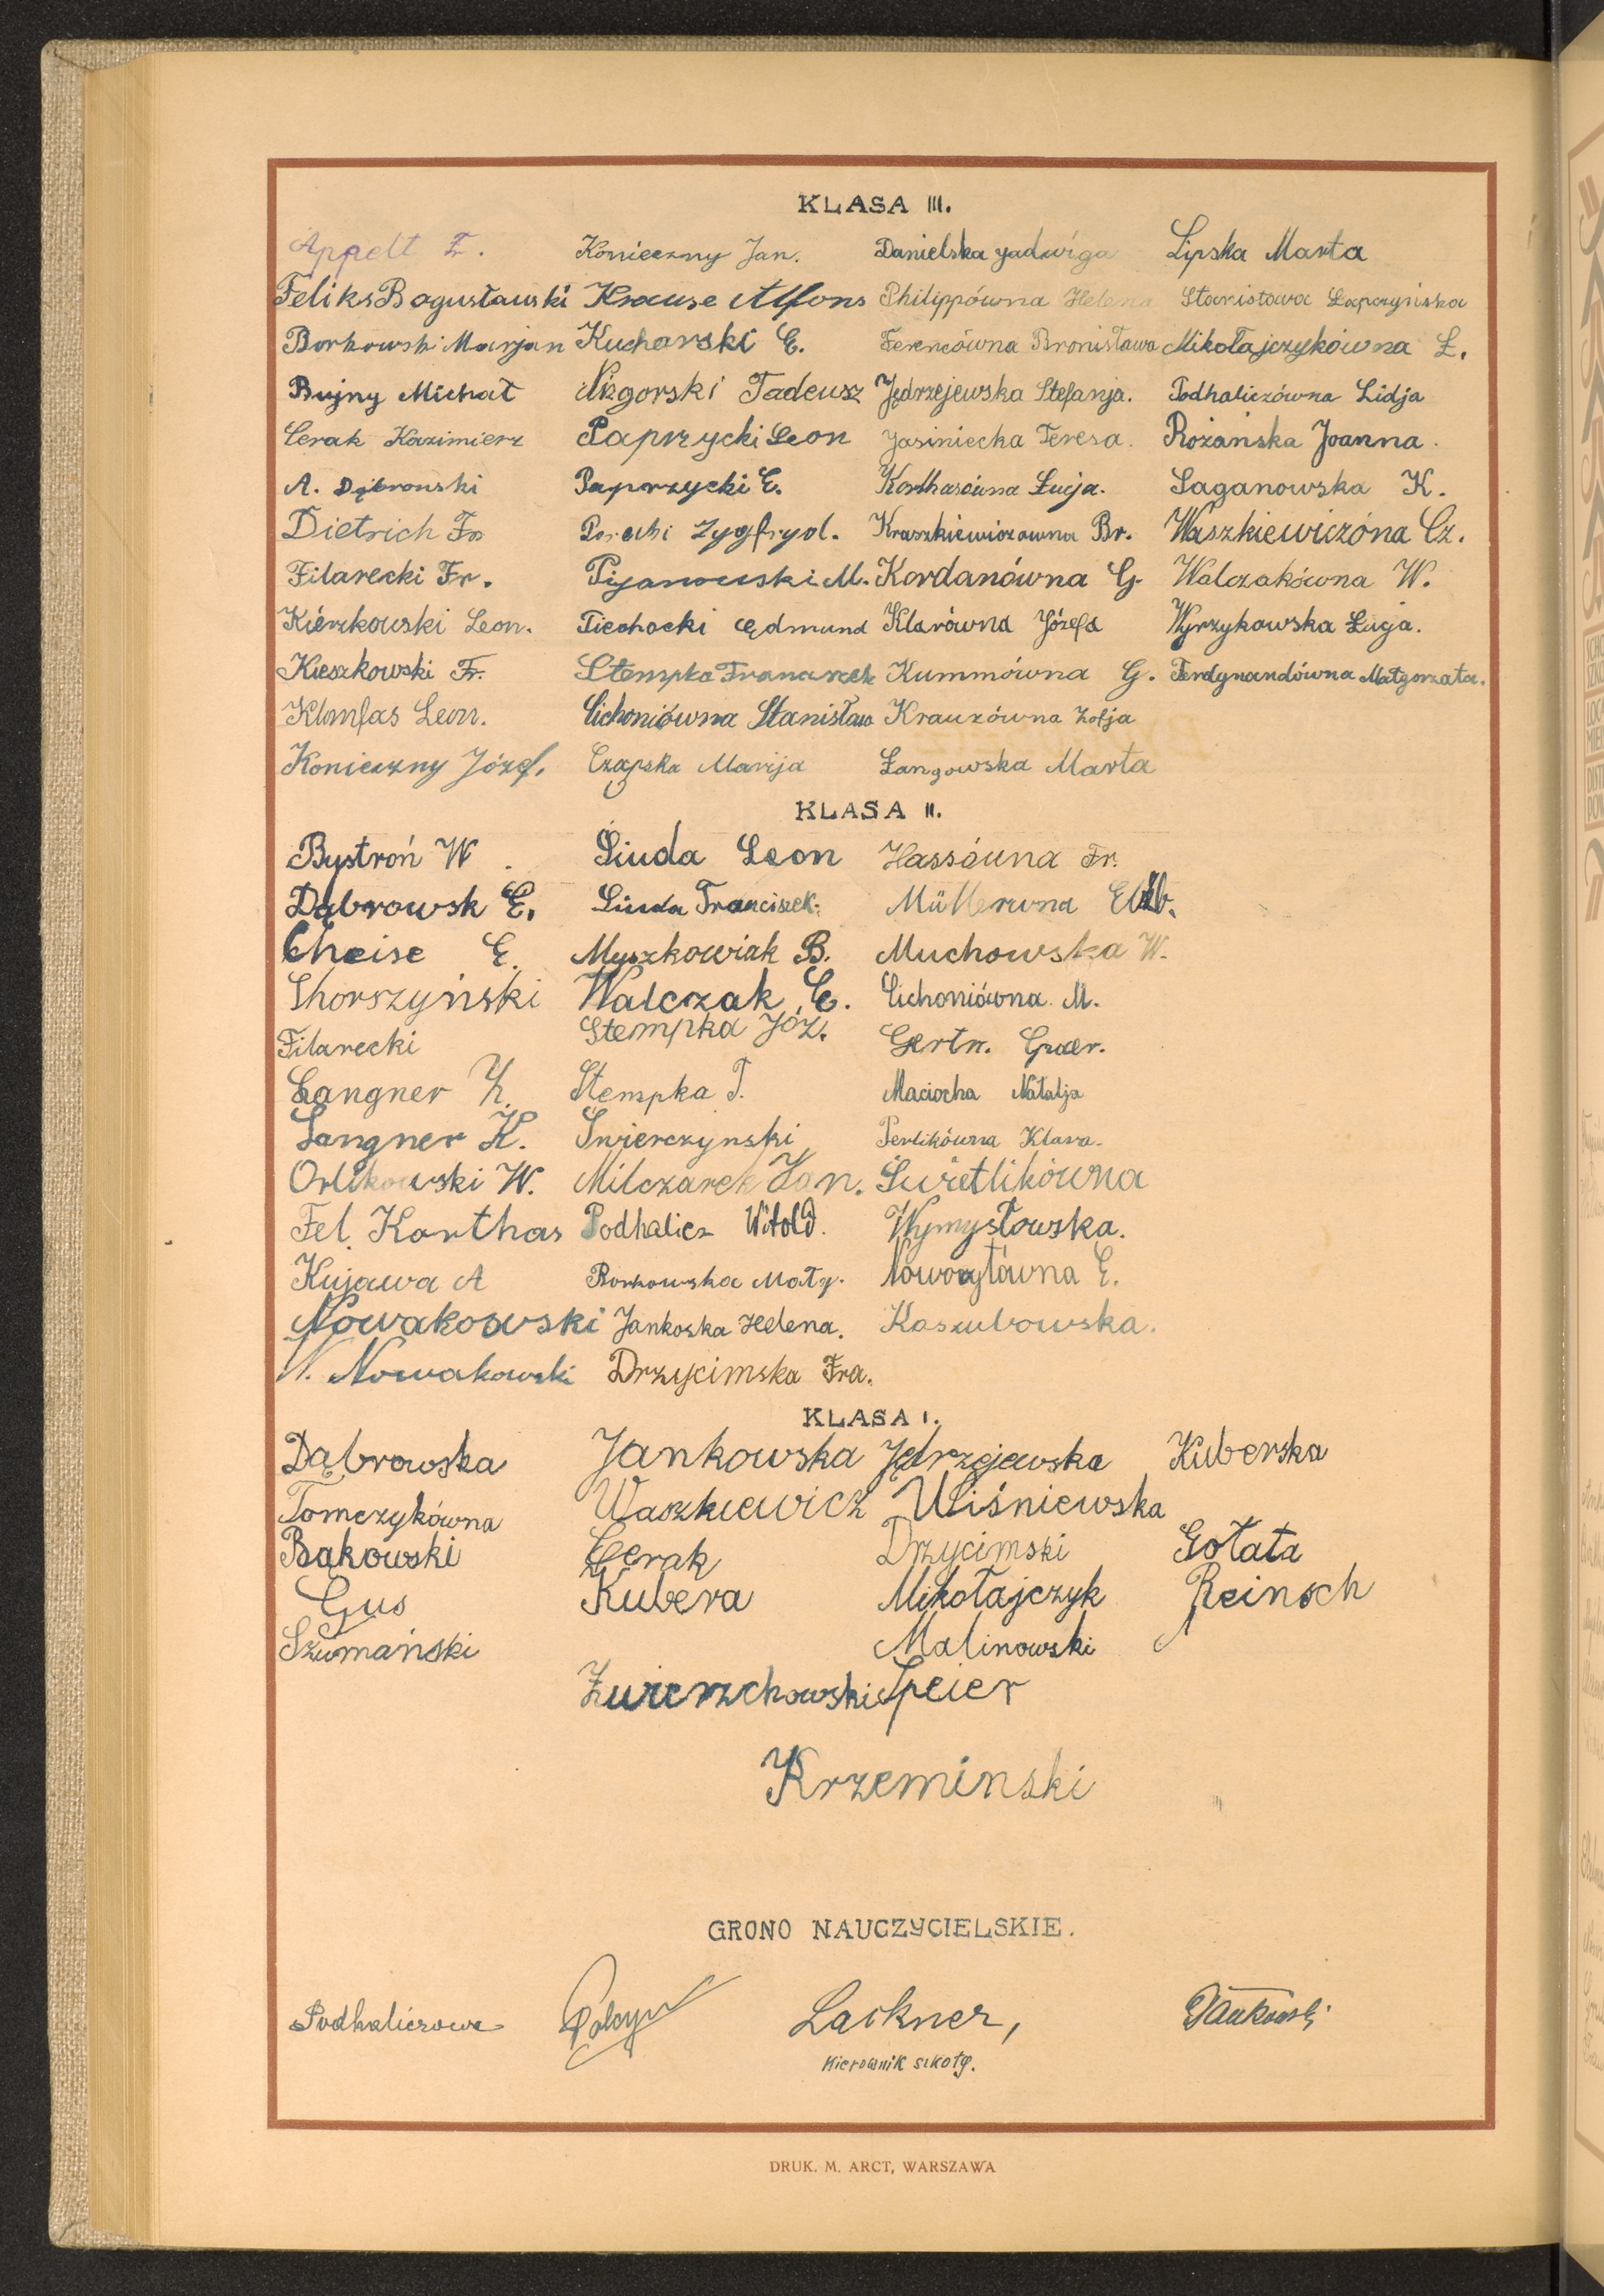 KLASA III.
Appelt F. Konieczny Jan. Danielska Jadwiga Lipska Marta
Feliks Bogusławski Krause Alfons Philippówna Helena Stanisława Łapczyńska
Borkowski Marjan Kucharski E. Ferencówna Bronisława Mikołajczykówna Ł.
Bujny Michał Nizgorski Tadeusz Jędrzejewska Stefanja. Podhaliczówna Lidja
Cerak Kazimierz Paprzycki Leon Jasiniecka Teresa. Rożańska Joanna.
A. Dąbrowski Paprzycki E. Korthasówna Łucja. Saganowska K.
Dietrich Fr Zygfryd. Kraszkiewiczowna Br. Waszkiewiczóna Cz.
Filarecki Fr. Pijanowski M. Kordanówna G. Walczakówna W.
Kierzkowski Leon. Piechocki Edmund Klarówna Józefa Wyrzykowska Łucja.
Kieszkowski Fr. Stempka Franciszek Kummówna G. Ferdynandówna Małgorzata.
Klimfas Leon. Cichoniówna Stanisław Krauzówna Zofja
Konieczny Józef. Czapska Marija Łangowska Marta
KLASA II.
Bystroń W. Siuda Leon Hassówna Fr.
Dąbrowsk E. Siuda Franciszek. Müllerwna Elżb.
Cheise E. Myszkowiak B. Muchowska W.
Chorszyński Walczak E. Cichoniówna M.
Filarecki Stempka Józ. Gertr.
Langner H. Stempka T. Maciocha Natalja
Langner K. Swierczynski Perlikówna Klara.
Orlikowski W. Milczarek Jan. Świetlikówna
Fel. Korthas Podhalicz Witold. Wymysłowska.
Kujawa A Borkowska Małg. Noworytówna E.
Nowakowski Jankoska Helena. Kaszubowska.
W. Nowakowski Drzycimska Fra.
KLASA I.
Dąbrowska Jankowska Jędrzejewska Kuberska
Tomczykówna Waszkiewicz Wiśniewska
Bąkowski Cerak Drzycimski Gołata
Gus Kubera Mikołajczyk Reinsch
Szumański Malinowski
Zwierzchowski Speier
Krzeminski
GRONO NAUCZYCIELSKIE.
Podhaliczowa Lackner,
Kierownik szkoły.
DRUK. M. ARCT, WARSZAWA